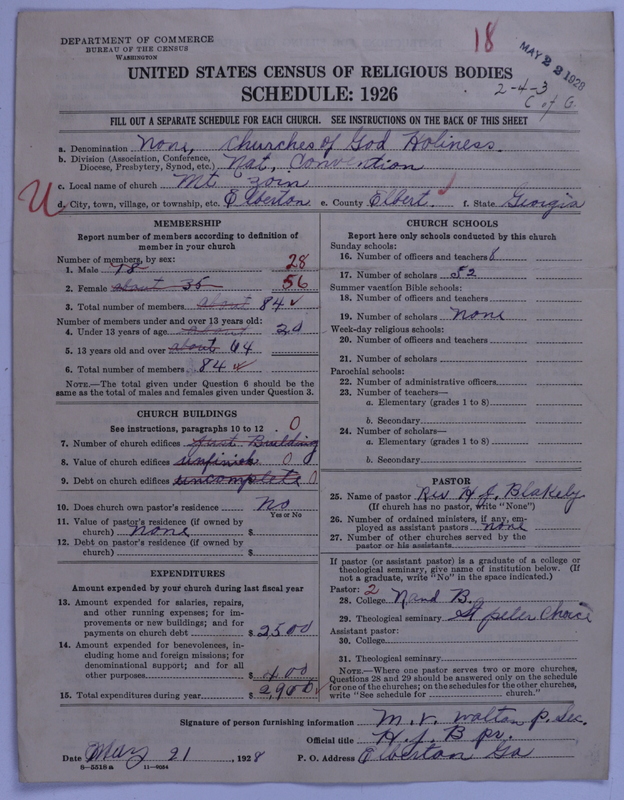 DEPARTMENT OF COMMERCE
BUREAU OF THE CENSUS
WASHINGTON
18
MAY 22 1928
UNITED STATES CENSUS OF RELIGIOUS BODIES
2-4-3
SCHEDULE: 1926
C of G.
FILL OUT A SEPARATE SCHEDULE FOR EACH CHURCH. SEE INSTRUCTIONS ON THE BACK OF THIS SHEET
a. Denomination None, Churches of God Holiness.
b. Division (Association, Conference, Diocese, Presbytery, Synod, etc.) Nat, Convention
c. Local name of church Mt Zoin
d. City, town, village, or township, etc. Elberton e. County Elbert. f. State Georgia
MEMBERSHIP
Report number of members according to definition of member in your church
Number of members, by sex:
1. Male 18 28
2. Female about 35 56
3. Total number of members about 84
Number of members under and over 13 years old:
4. Under 13 years of age 20
5. 13 years old and over about 64
6. Total number of members 84
NOTE.—The total given under Question 6 should be same as the total of males and females given under Question 3.
CHURCH BUILDINGS
See instructions, paragraphs 10 to 12
7. Number of church edifices just Building 0
8. Value of church edifices unfinish 0
9. Debt on church edifices uncomplete 0
10. Does church own pastor's residence No
Yes or No
11. Value of pastor's residence (if owned by church) None $
12. Debt on pastor's residence (if owned by church) $
EXPENDITURES
Amount expended by your church during last fiscal year
13. Amount expended for salaries, repairs, and other running expenses; for improvements or new buildings; and for payments on church debt $ 2500
14. Amount expended for benevolences, including home and foreign missions; for denominational support; and for all other purposes $ 400
15. Total expenditures during year $ 2,900
CHURCH SCHOOLS
Report here only schools conducted by this church
Sunday schools:
16. Number of officers and teachers 6
17. Number of scholars 52
Summer vacation Bible schools:
18. Number of officers and teachers
19. Number of scholars None
Week-day religious schools:
20. Number of officers and teachers
21. Number of scholars
Parochial schools:
22. Number of administrative officers
23. Number of teachers—
a. Elementary (grades 1 to 8)
b. Secondary
24. Number of scholars—
a. Elementary (grades 1 to 8)
b. Secondary
PASTOR
25. Name of pastor Rev H J. Blakely
(If church has no pastor, write "None")
26. Number of ordained ministers, if any, employed as assistant pastors none
27. Number of other churches served by the pastor or his assistants
If pastor (or assistant pastor) is a graduate of a college or theological seminary, give name of institution below. (If not a graduate, write "No" in the space indicated.)
Pastor: 2
28. College N and B.
29. Theological seminary St peler Choice
Assistant pastor:
30. College
31. Theological seminary
NOTE.—Where one pastor serves two or more churches, Questions 28 and 29 should be answered only on the schedule for one of the churches; on the schedules for the other churches, write "See schedule for church."
Signature of person furnishing information M. V. Walton p. Sec.
Official title H. J. B pr.
Date May 21, 1928 P. O. Address Elberton Ga
8—5518a 11—9034